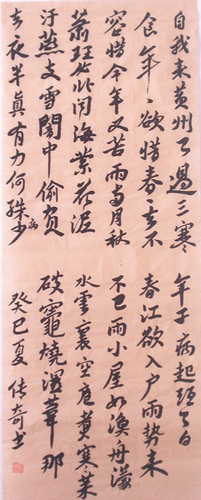 自我来黄州已過三寒
食年〻欲惜春〻去不
容惜今年又苦雨兩月秋
蕭瑟卧聞海棠花泥
汙燕支雪闇中偷負
去夜半真有力何殊少病
年子病起頭已白
春江欲入户雨势来
不已雨小屋如漁舟濛
水雲裏空庖煮寒菜
破竈燒濕葦那
癸巳夏 传奇书